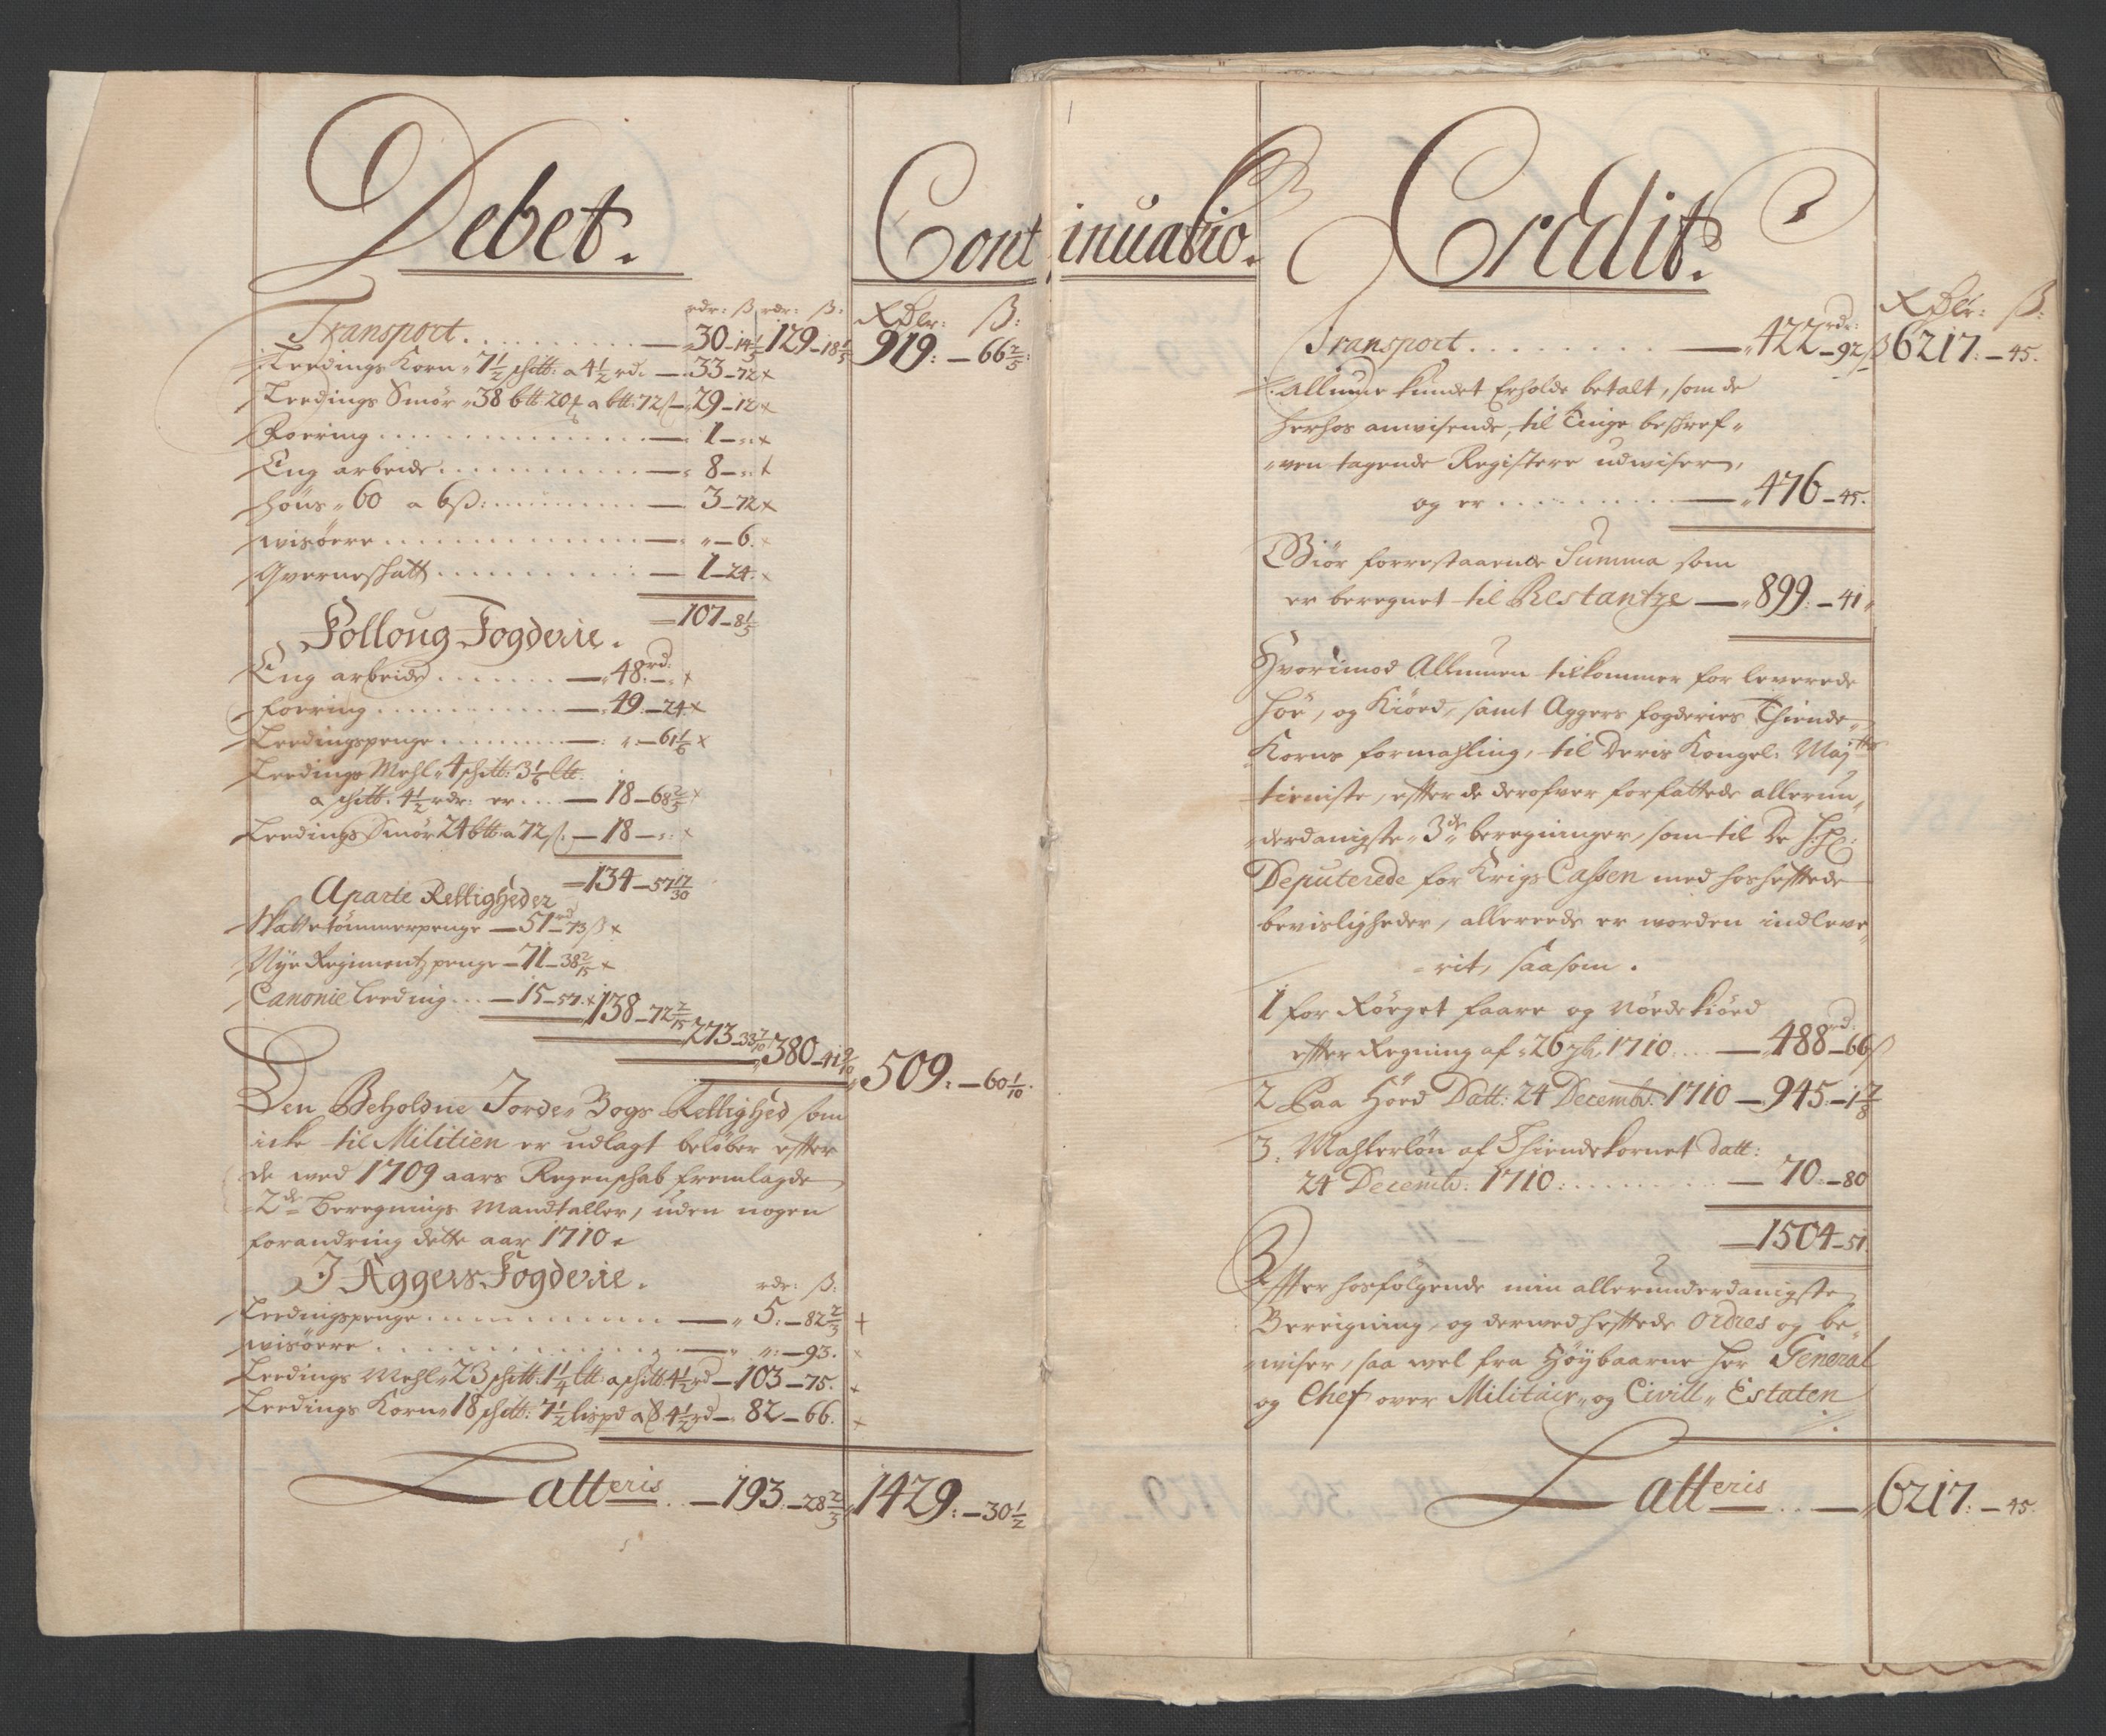 Debet.
Continuatio.
rdr: ß rdr: ß:
RDlr: ß:
Transport . . . . . . . . . . — 30 – 14 1/5 129 – 18 1/5 919: – 66 2/5:
Leedings Korn „ 7 1/2 schtt: a 4 1/2 rd: — 33 – 72 x
Leedings Smör „ 38 btt 20 a btt: 72 ß — 29 – 12 x
Foering . . . . . . . . . . — 1 – „: x
Eng arbeide . . . . . . . . . . — 8 – „: x
Höns „ 60 a 6 ß: . . . . . . . . — 3 – 72 x
wisöere . . . . . . . . . . — „ – 6. x
Gverneskatt . . . . . . . . . . — 1 – 24. x
107 – 8 1/5
Folloug Fogderie.
Eng arbeide . . . . . . — 48 rd: – „: x
foering . . . . . . . . . — 49 – 24 x
Leedingspenge . . . . . . . . — „ – 61 1/6 x
Leedings Mehl „ 4 schtt: 3 1/6 ltt:
a schtt. 4 1/2 rdr: er . . . — 18 – 68 2/5 x
Leedings Smör 24 btt a 72 ß. — 18 – „: x
134 – 57 17/30
Aparte Rettigheder
Skattetömmerpenge — 51 rd – 73 ß x
Nye Regimentz penge — 71 – 38 2/15 x
Canonie Leeding . . . — 15 – 57. x 138 – 72 2/15
273 – 33 7/10
380 – 41 9/10 509: – 60 1/10.
Den Beholdne Jorde„Bogs Rettighed som
icke til Militien er udlagt belöber efter
de med 1709 aars Regenskab fremlagde
2de Beregnings Mandtaller, uden nogen
forandring dette aar 1710.
I Aggers Fogderie. rdr: ß:
Leedingspenge . . . . . . . . . . — 5: – 82 2/3 x
wisöere . . . . . . . . . . — „: – 93. x
Leedings Mehl „ 23 schtt: 1 1/4 ltt: a schtt 4 1/2 rd — 103 – 75. x
Leedings Korn „ 18 schtt: 7 1/2 lispd a 4 1/2 rd — 82 – 66. x
Latteris . . — 193: – 28 2/3 1429: – 30 1/2
Credit.
RDlr: ß:
Transport . . . . . . . . — 422 rdr: – 92 ß 6217: – 45.
Allmue kundet Erholde betalt, som de
herhos anvisende, til Tinge beskref„
„ven tagende Registere udwiser,
og er . . . . . . . . . . — 476 – 45.
Giör forrestaaende Summa som
er beregnet til Restantze — 899: – 41
Hvorimod Allmuen tilkommer for leverede
Höe, og Kiöed, samt Aggers fogderies Thiende„
Korns formahling, til Deris Kongel: Maytts
tieniste, efter de derofver forfattede allerun„
„derdanigste „ 3de beregninger, som til De
Deputerede for Krigs Cassen med hoshefftede
bevisligheder, allereede er worden indleve„
„rit, saasom.
1 for Röeget faare og Nödekiöed
efter Regning af „ 26 1710 . . . — 488 rd: – 66 ß
2 Paa Höed Datt: 24 Decemb: 1710 — 945: – 1 7/8
3. Mahlerlön af Thiendekornet datt:
24 Decemb: 1710: . . . . . . . — 70: – 80
1504 – 51.
Effter hosfölgende min allerunderdanigste
Bereigning, og dermed hefftede Ordres og be„
„wiser, saa wel fra Höybaarne Her General
og Chef over Militair „ og Civill „ Estaten
Latteris . . — 6217: – 45.